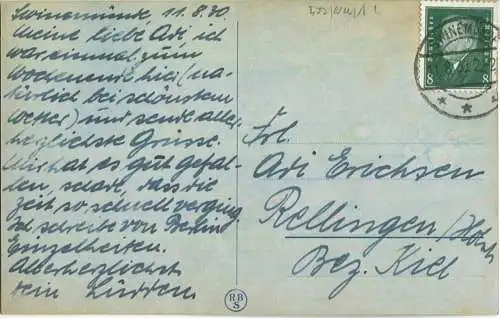 Swinemünde, 11.8.30.
Meine liebe Adi ich
war einmal zum
Wochenende hier (na-
türlich bei schönstem
Wetter) und sende aller-
herzlichste Grüsse.
Mir hat es gut gefal-
len, schade, dass die
Zeit so schnell verging
Ich schreibe von Berlin
Einzelheiten.
Allerherzlichst
Dein
Frl.
Adi Erichsen
Rellingen/Holst
Bez. Kiel
8 8
SWINEM
RB
S